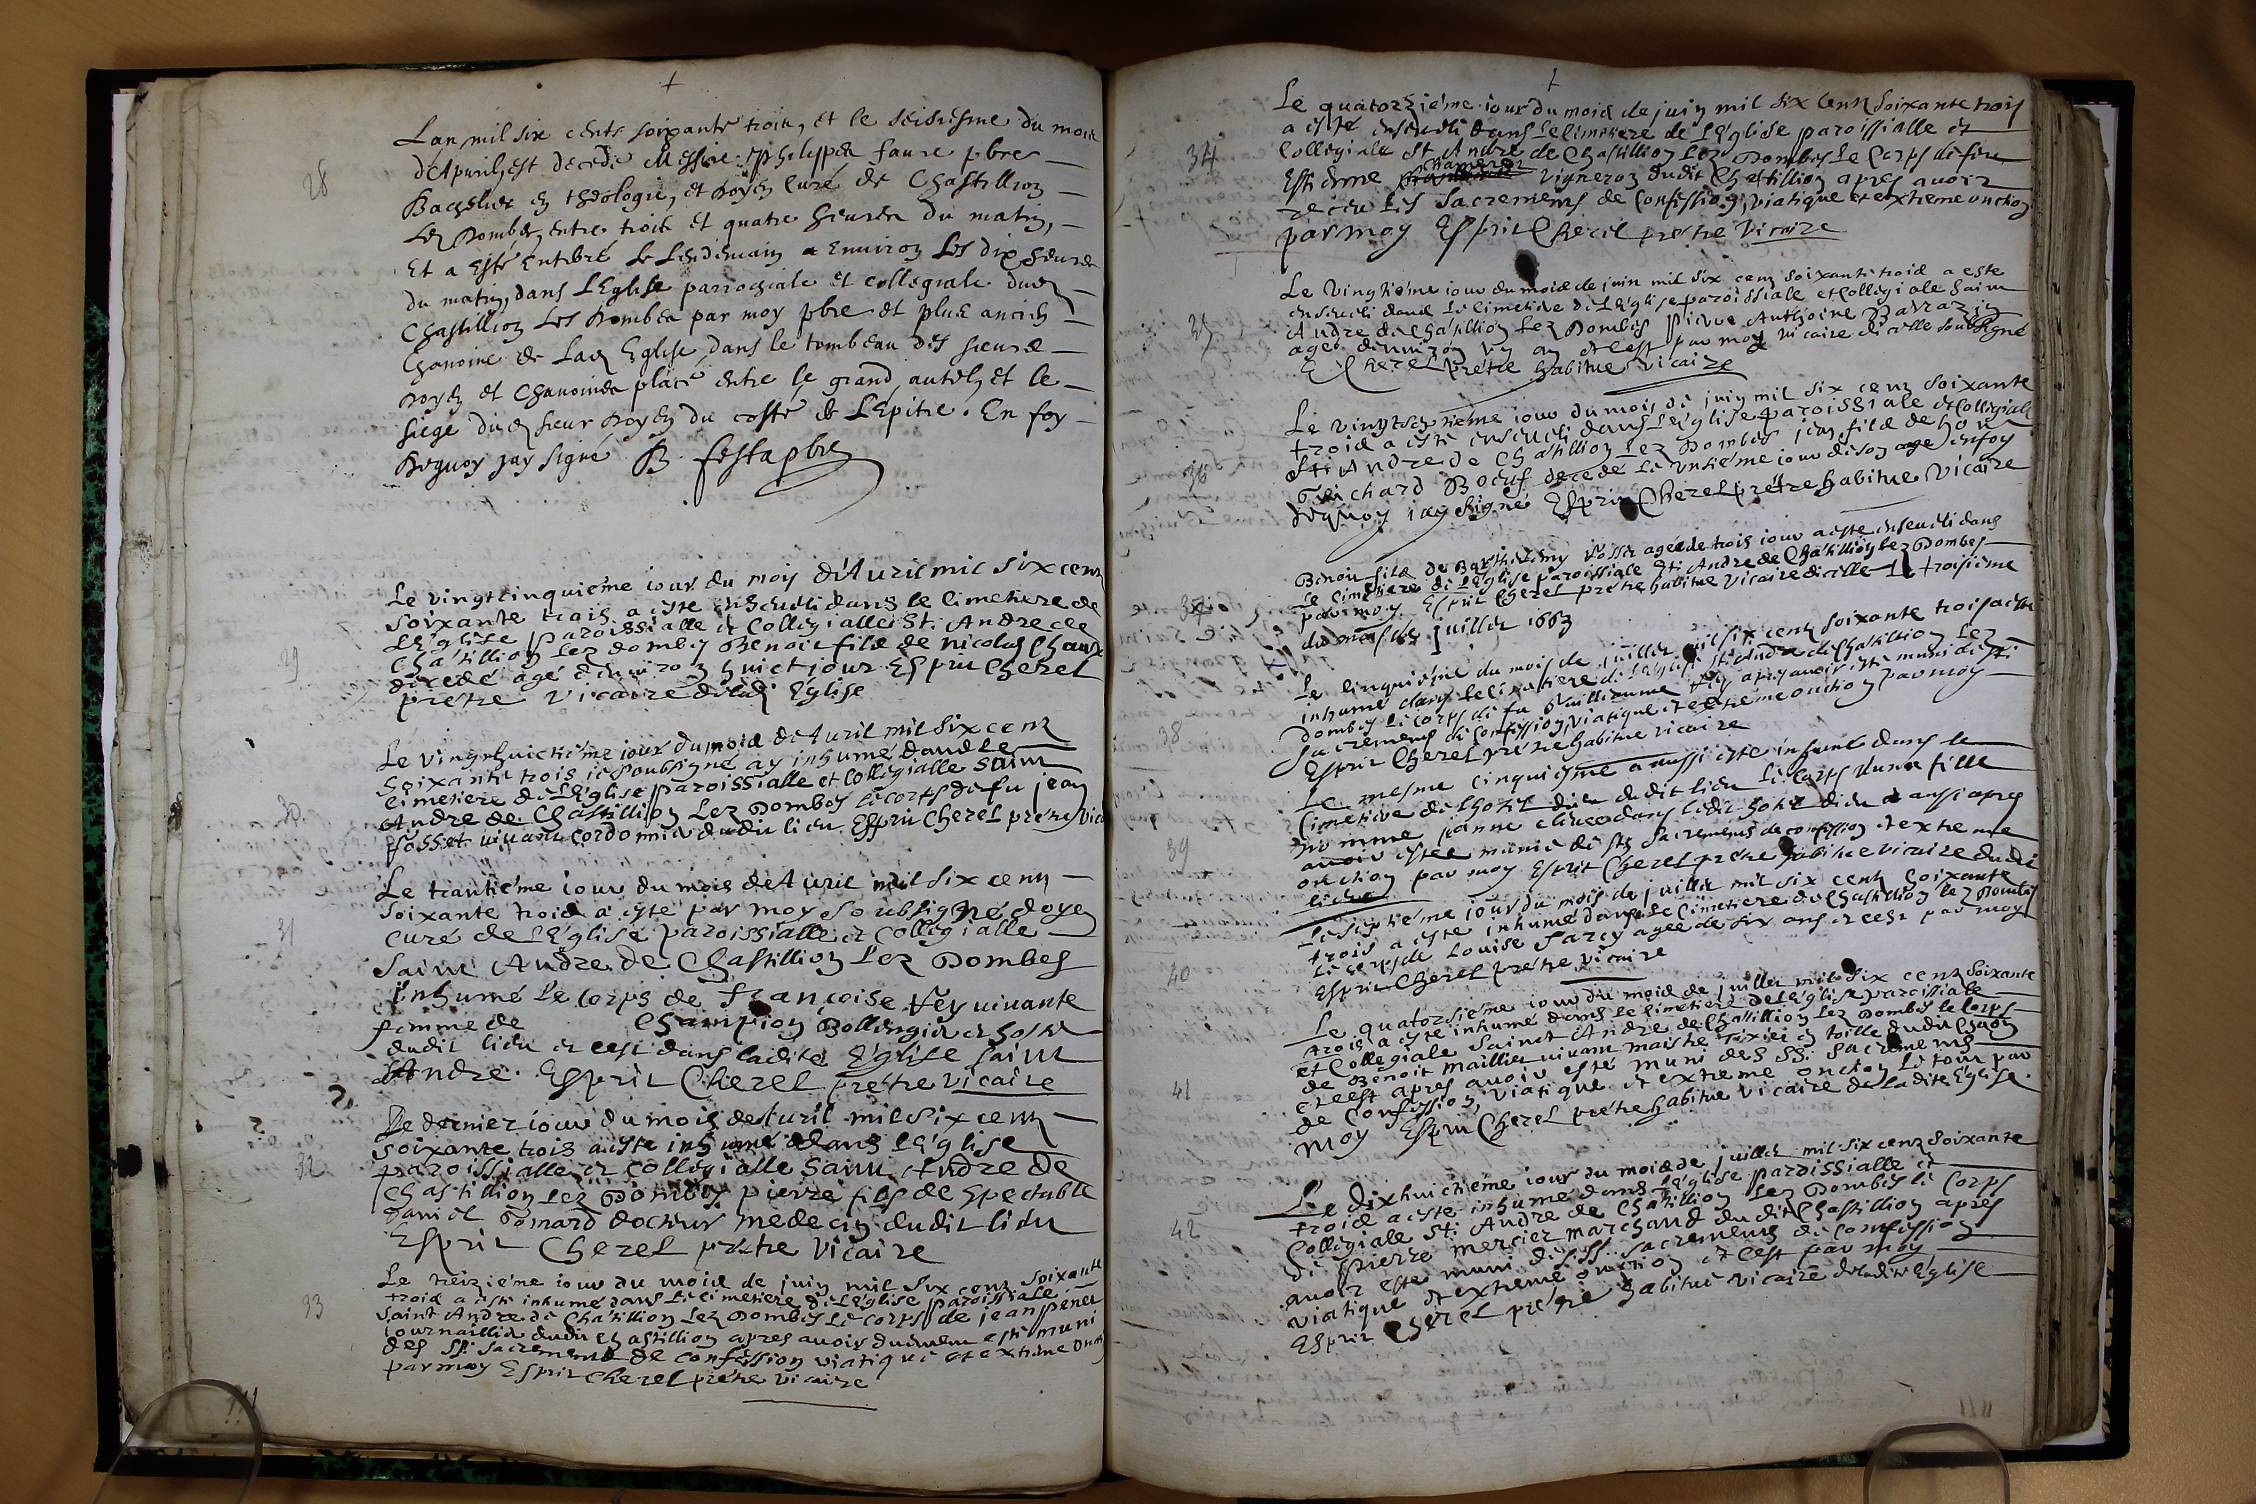 Lan mil six cents soixante trois, et le seisiesme du mois
28
d'Apuril, est decedé Messire Philippes faure pbre
Bachelier en theologie, et doyen Curé de Chastillion
Lez Dombes, entre trois et quatre heures du matin,
Et a esté enterré Le Lendemain a Environ Les dix heures
du matin, dans L'Eglise parrochiale et collegiale dud
Chastillion Les Dombes par moy pbre et plus ancien
Chanoine de Lad Eglise, dans le tombeau des sieurs
doyen et Chanoines placé entre le grand autel, et le
siege dud sieur doyen du costé de L'Epitre. En foy
dequoy jay signé B. festa pbre
29
Le vingtcinquiéme iour du moy d'Auril mil six cenz
soixante trois a esté enseueli dans le Cimetiere de
L'église paroissialle et Collegialle St. Andre de
Chatillion Lez dombes Benoit fils de nicolas Chanx
decedé agé d'enuiron huict jour Esprit Cherel
prétre Vicaire de lad Eglise
30
Le vingthuictiéme iour du mois de Auril mil six cenz
soixante trois ie soubsigné ay inhumé dans le
Cimetiere de L'église paroissialle et Collegialle saint
Andre de Chastillion Lez Dombes le corps de fu jean
fosset uiuant Cordonnier dudit lieu Esprit Cherel prétre Vic
31
Le trantiéme iour du mois de Auril mil six cenz
soixante trois a esté par moy soubsigné doyen
Curé de L'Eglise paroissialle et Collegialle
saint Andre de Chastillion Lez Dombes
inhumé Le Corps de Françoise Fey uiuante
femme de Champion Bollengier et hoste
dudit lieu et cest dans ladite Eglise saint
Andre. Esprit Cherel prétre Vicaire
32
Le dernier iour du mois de Auril mil six cenz
soixante trois a esté inhumé dans L'église
paroissialle et Collegialle saint Andre de
Chastillion Lez Dombes pierre fils de Spectable
Daniel Ponard docteur medecin dudit lieu
Esprit Cherel prétre Vicaire
33
Le treiziéme iour du mois de juin mil six cenz soixante
trois a esté inhumé dans le Cimetiere de L'église paroissiale
saint Andre de Chatillion Lez Dombes Le corps de jean penet
journaillier dudit Chastillion apres auoir duement esté muni
des SS. Sacrements de confession viatique et extrême onct
par moy Esprit Cherel prétre Vicaire
34
Le quatorziéme iour du mois de juin mil six Cenz soixante trois
a esté enseueli dans le Cimetiere de L'église paroissialle et
Collegiale St Andre de Chastillion Lez Dombes Le Corps de feu
Estienne vigneron dudit Chastillion apres auoir
receu les Sacrements de Confession, viatique et extreme onction
par moy Esprit Cherel prétre Vicaire
35
Le vingtiéme iour du mois de juin mil six cenz soixante trois a este
enseueli dans le Cimetiere de L'église paroissialle et Collegiale saint
Andre de Chastillion Lez Dombes Pierre Anthoine
agé denuiron un an et cest par moy vicaire dicelle soubsigné
E Cherel prétre habitue vicaire
36
Le vingtsetiéme iour du mois de juin mil six cenz soixante
trois a esté enseueli dans L'église paroissiale et Collegiale
St. Andre de Chatillion Lez Dombes jean fils de hon
Guichard Boeuf decedé Le unsiéme iour de son age en foy
dequoy i'ay signé Esprit Cherel prétre habitue Vicaire
37
Benoit fils de Barthelemy agé de trois iour a este enseueli dans
le Cimetiere de L'église paroissiale St. Andre de Chatillion Lez Dombes
par moy Esprit Cherel prétre habitue vicaire dicelle Le troisiéme
du mois de juillet 1663
38
Le Cinquiéme du mois de juillet mil six cenz soixante trois a este
inhumé dans le Cimetiere de L'église St Andre de Chatillion Lez
Dombes le corps de fu Guillieaume Fey apres auoir este muni de
Sacrements de Confession, viatique et extréme onction par moy
Esprit Cherel prétre habitue vicaire
39
Le mesme cinquiesme a aussi este inhumé dans le
Cimetiere de L'hotel dieu dudit lieu Le Corps d'une fille
nommée janne eleuee dans ledit hotel dieu et aussi apres
auoir estee munie de Sts Sacrements de confession et extreme
onction par moy Esprit Cherel prétre habitue vicaire dudit
lieu
40
Le septiéme iour du mois de juillet mil six cenz soixante
trois a este inhumé dans le Cimetiere de Chastillion lez Dombes
le corps de Louise Sarcy agée de six ans et cest par moy
Esprit Cherel prétre vicaire
41
Le quatorsiéme iour du mois de juillet mil six cenz soixante
trois a este inhumé dans le Cimetiere de L'église paroissiale
et Collegiale Sainct Andre de Chastillion Lez Dombes le corps
de Benoit maillier uiuant maistre Tixier en toille dudit Chastn
et cest apres auoir este muni des SS. Sacrements
de Confession, viatique et extreme onction le tout par
moy Esprit Cherel prétre habitue vicaire de ladite Eglise.
42
Le dixhuictiéme iour du mois de juillet mil six cenz soixante
trois a este inhumé dans L'église paroissialle et
Collegiale St. Andre de Chatillion Lez Dombes le Corps
de pierre mercier marchand dudit Chastillion apres
auoir este muni des SS. Sacrements de Confession
viatique et extreme onction et cest par moy
Esprit Cherel prétre habitué vicaire de ladite Eglise